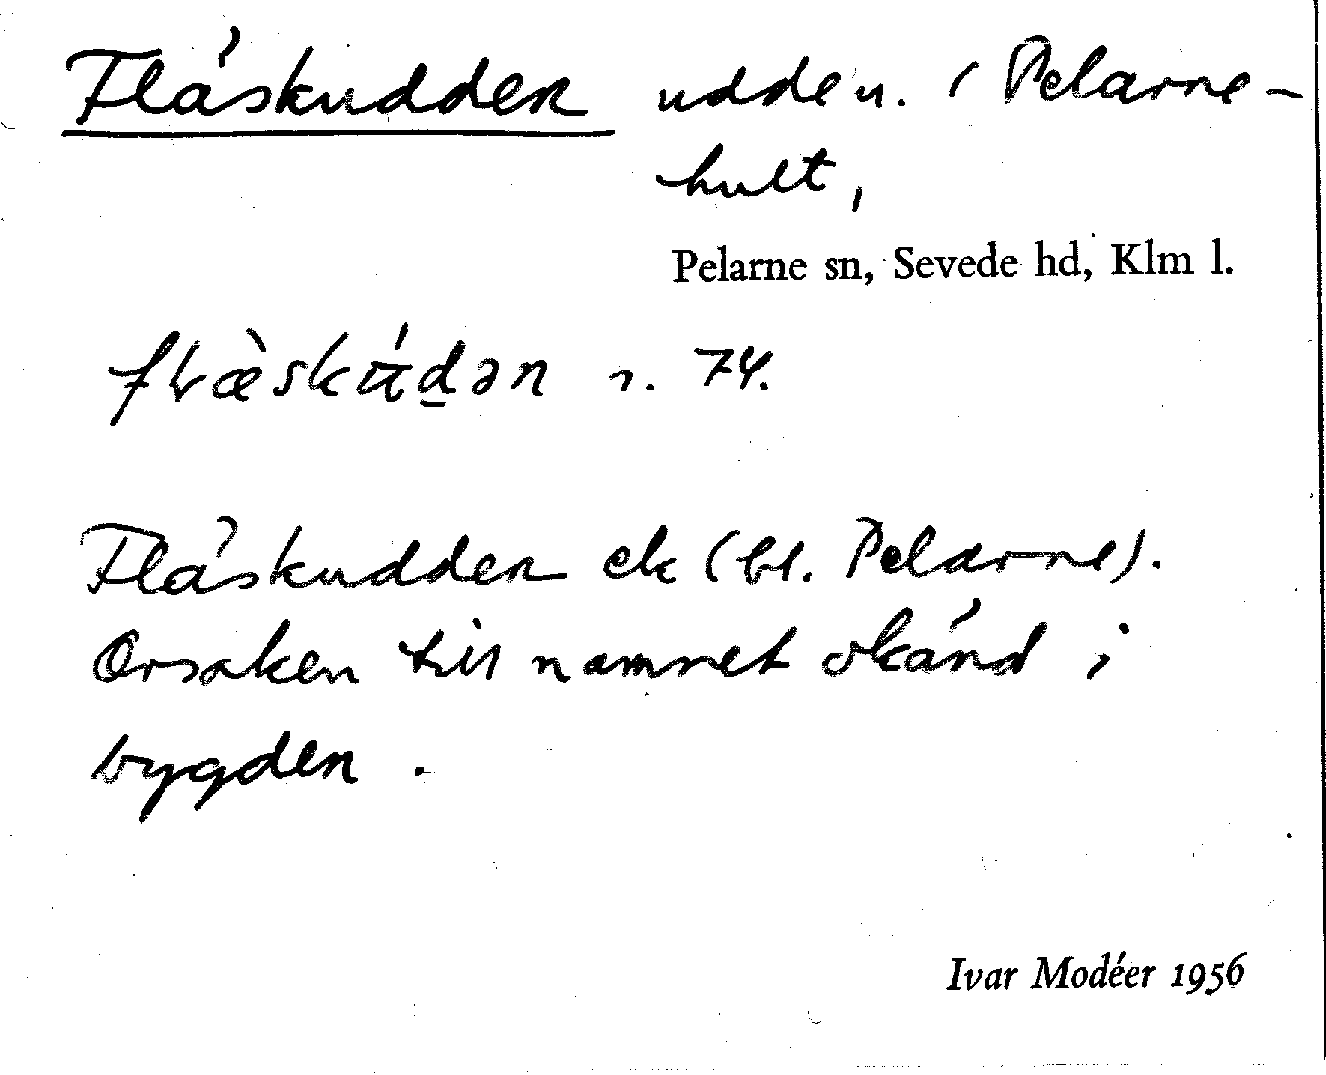 Fläskudden udde n. i Pelarne-
hult,
Pelarne sn, Sevede hd, Klm l.
flæ̀skúdən s. 74.
Fläskudden ek (bl. Pelarne).
Orsaken till namnet okänd i
bygden.
Ivar Modéer 1956